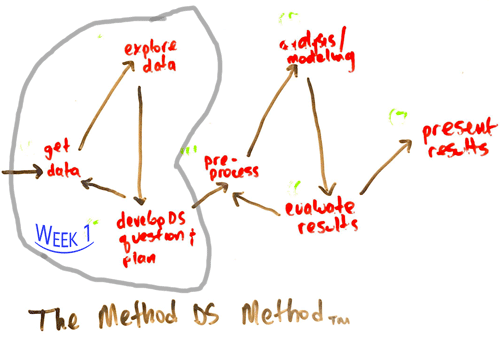 explore
data
get
data
develop DS
question +
plan
WEEK 1
pre-
process
analysis/
modeling
evaluate
results
present
results
The Method DS Method TM